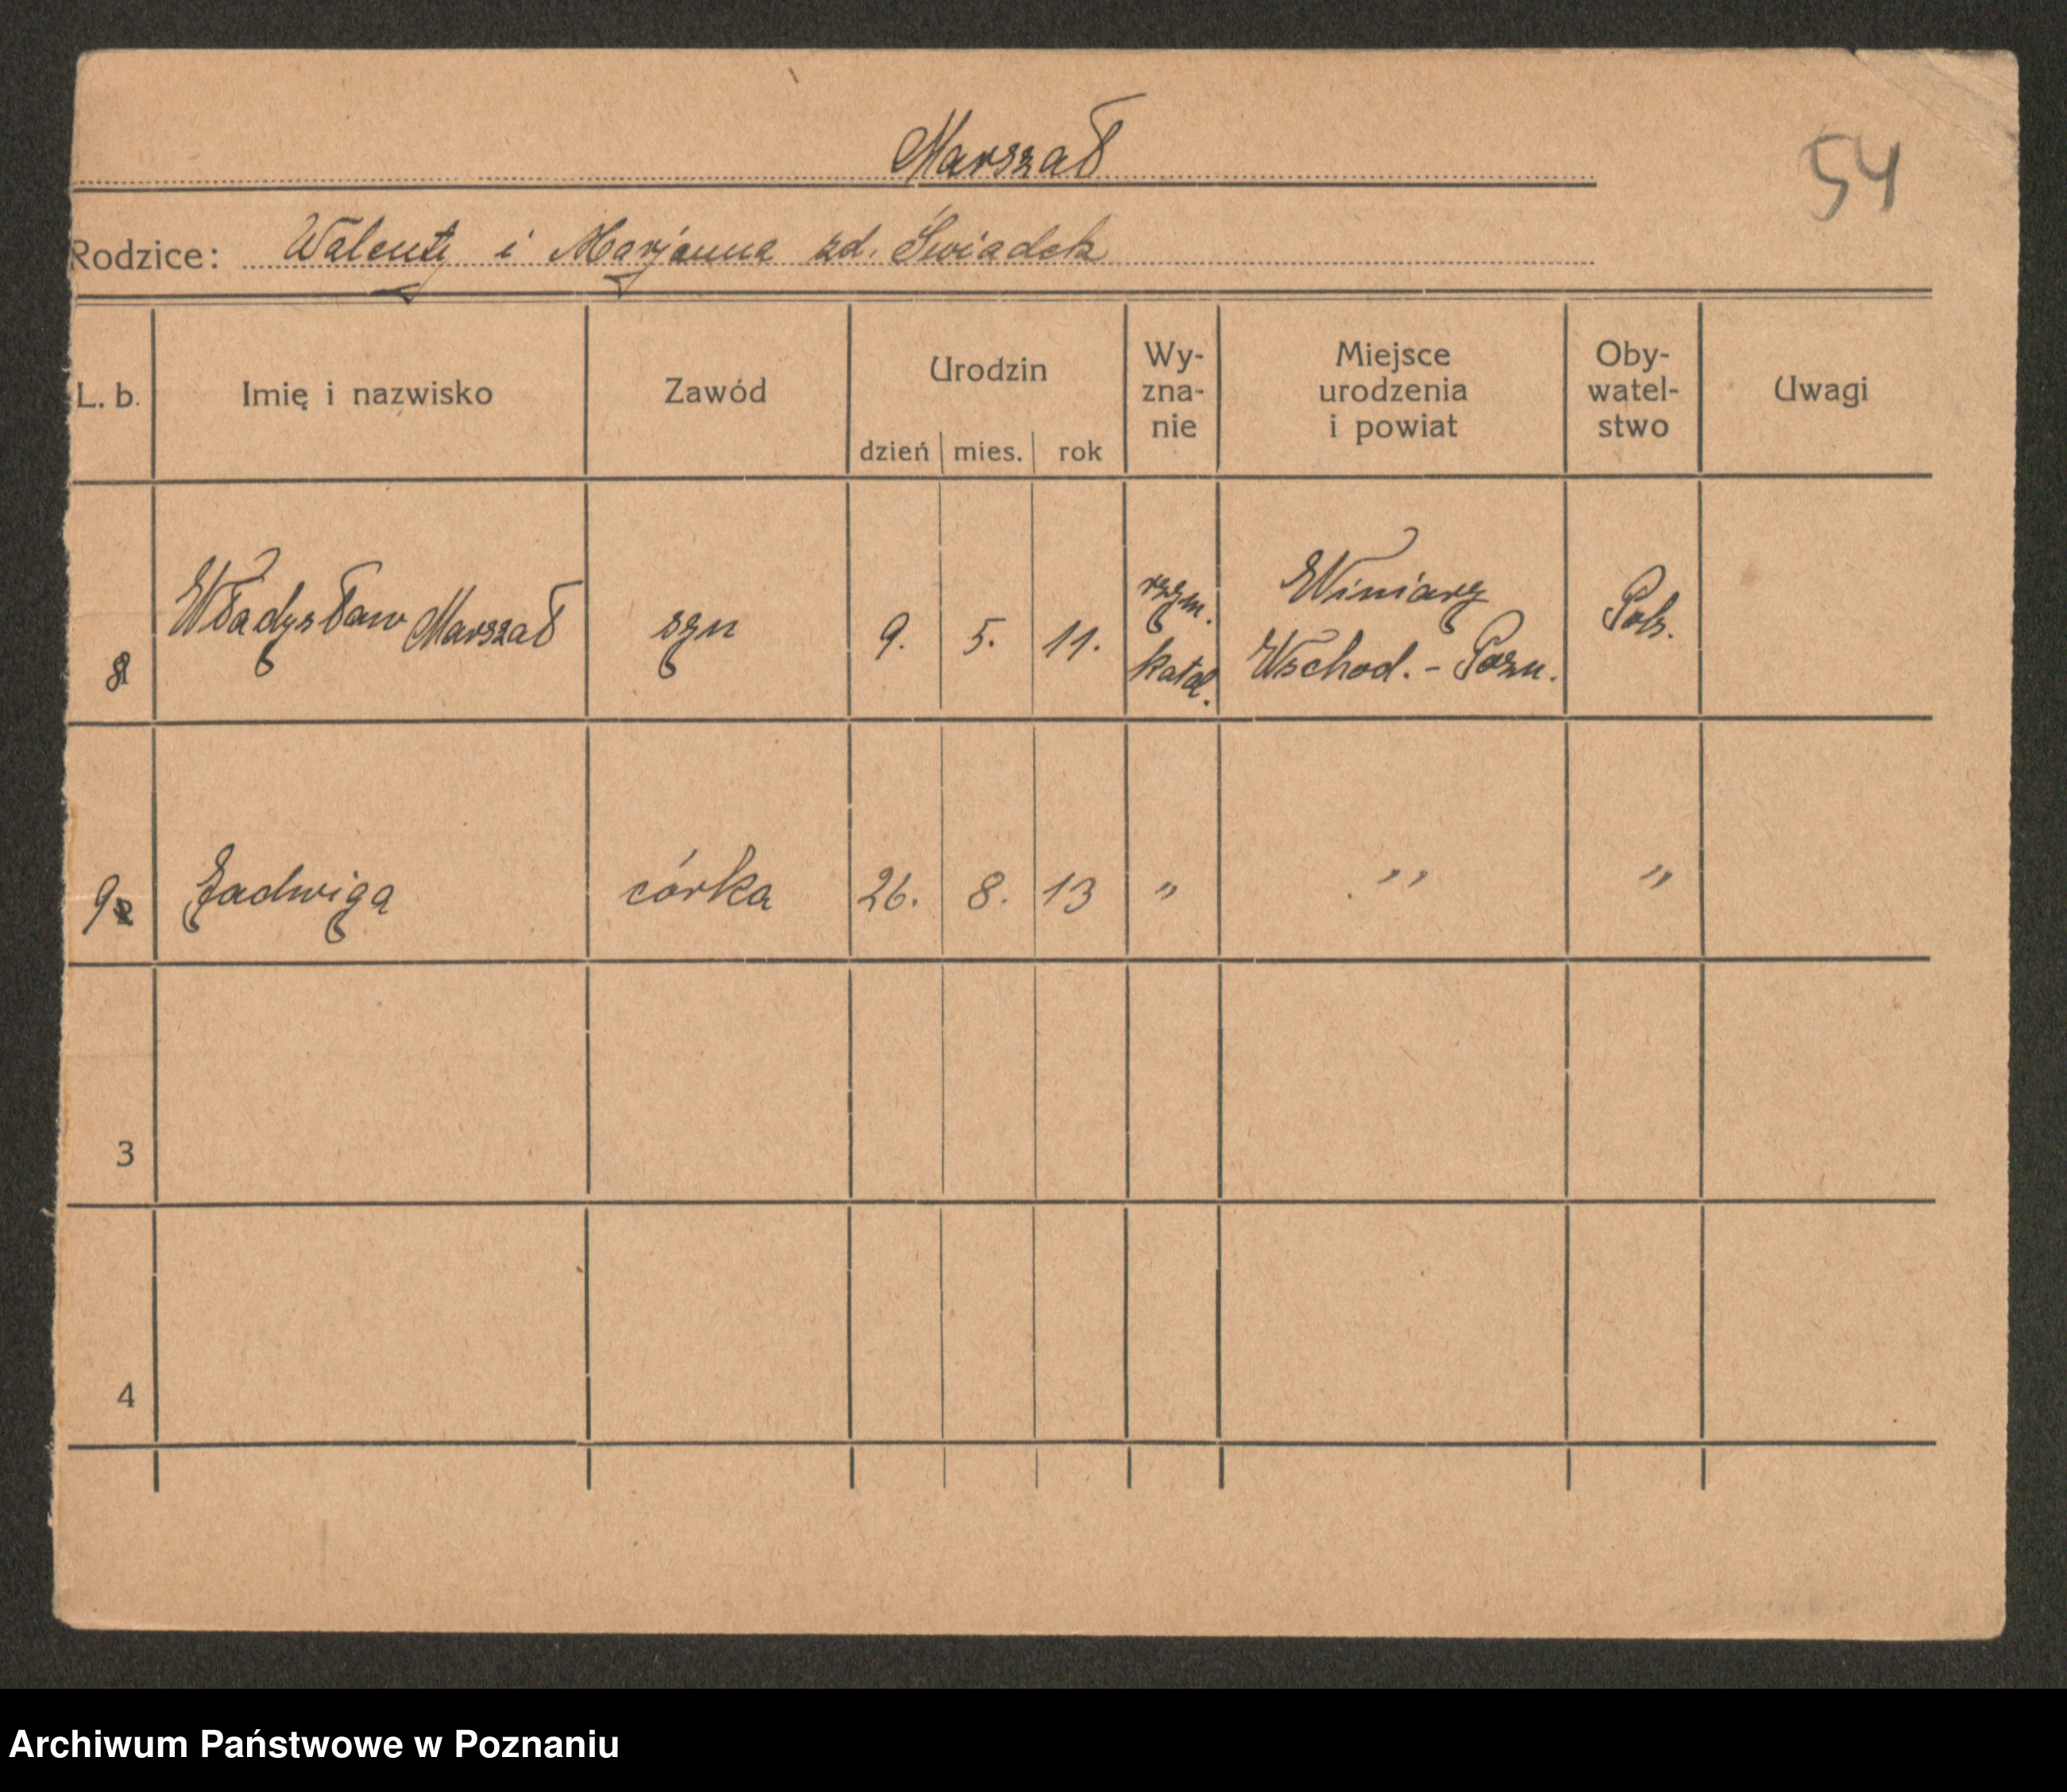 Marszał
54
Rodzice: Walenty i Marjanna zd. Świadek
L. b. Imię i nazwisko Zawód Urodzin dzień mies. rok Wy-zna-nie Miejsce urodzenia i powiat Oby-watel-stwo Uwagi
8 Władysław Marszał syn 9. 5. 11. rzym. katol. Winiary Wschod. - Pozn. Pols.
9 Jadwiga córka 26. 8. 13 " " "
3
4
Archiwum Państwowe w Poznaniu